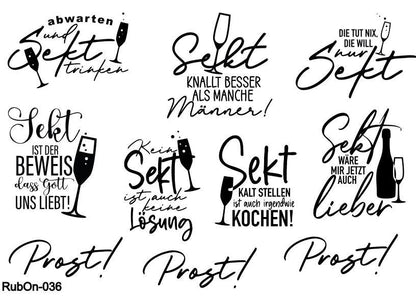 abwarten
und
Sekt
trinken
Sekt
KNALLT BESSER
ALS MANCHE
Männer!
DIE TUT NIX,
DIE WILL
nur
Sekt
Sekt
IST DER
BEWEIS
dass Gott
UNS LIEBT!
Kein
Sekt
ist auch
keine
Lösung
Sekt
KALT STELLEN
ist auch irgendwie
KOCHEN!
Sekt
WÄRE
MIR JETZT
AUCH
lieber
Prost!
Prost!
Prost!
RubOn-036